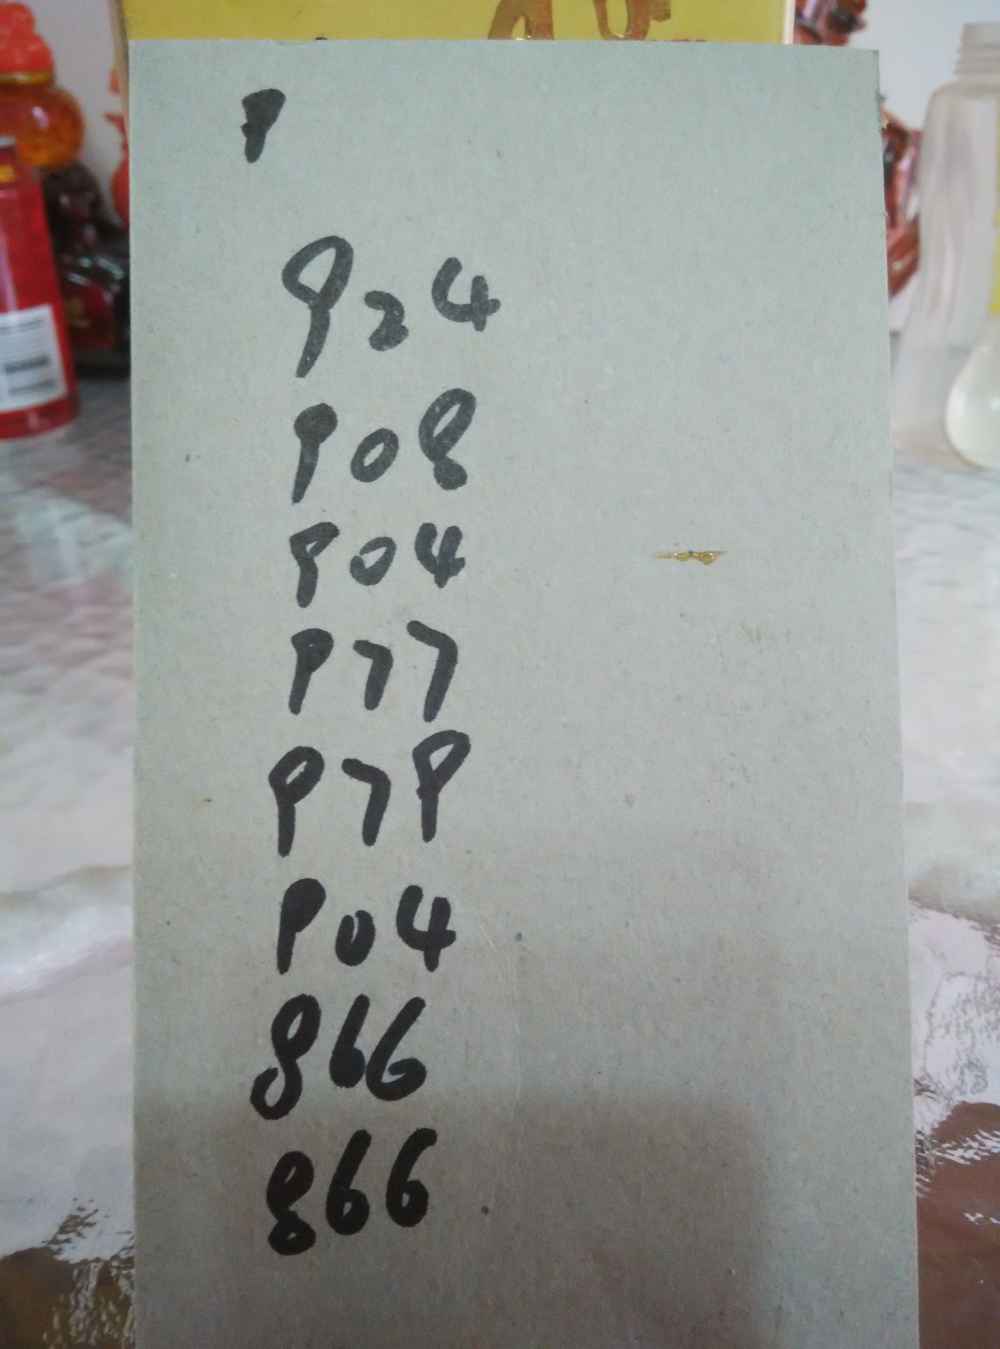 9
924
908
904
977
979
904
866
866